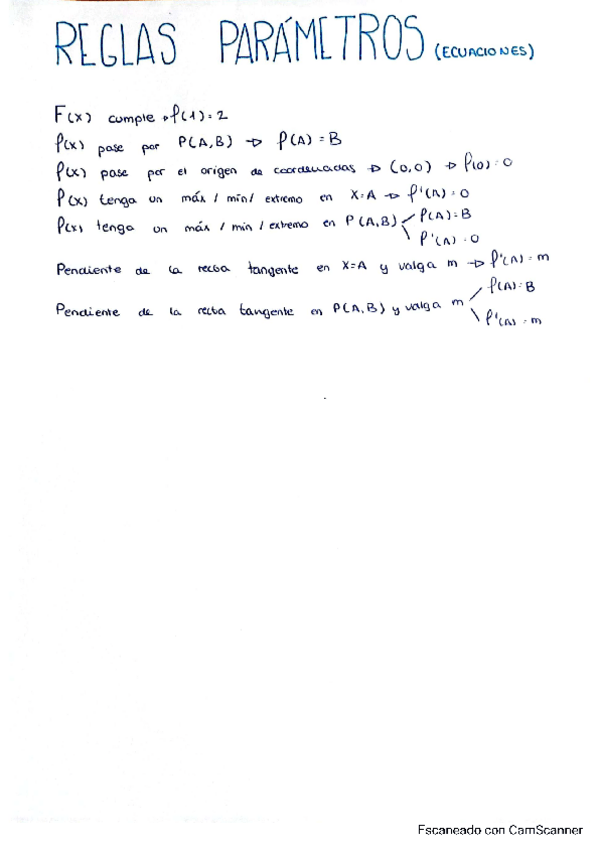 REGLAS PARÁMETROS (ECUACIONES)
F(x) cumple → f(1)=2
f(x) pase por P(A,B) → f(A)=B
f(x) pase por el origen de coordenadas → (0,0) → f(0)=0
f(x) tenga un máx / mín / extremo en X=A → f'(A)=0
f(x) tenga un máx / mín / extremo en P(A,B) f(A)=B
f'(A)=0
Pendiente de la recta tangente en X=A y valga m → f'(A)=m
Pendiente de la recta tangente en P(A,B) y valga m f(A)=B
f'(A)=m
Escaneado con CamScanner